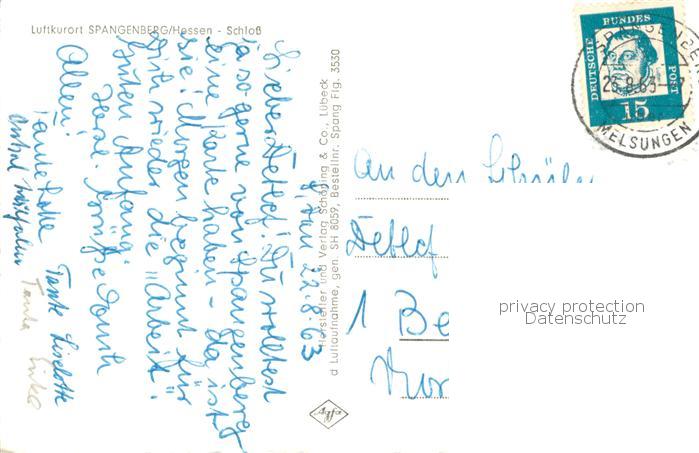 Luftkurort SPANGENBERG/Hessen - Schloß
d. 22.8.63
Lieber Detlef! Du wolltest
ja so gerne von Spangenberg
eine Karte haben - da ist
sie! Morgen beginnt für
Dich wieder die "Arbeit".
Guten Anfang!
Herzl. Grüße Euch
Allen!
Tante
Tante Liselotte
Tante
Hersteller und Verlag Schöning & Co., Lübeck
Luftaufnahme, gen. SH 8059, Bestellnr. Spang Fig. 3530
Agfa
DEUTSCHE BUNDESPOST
15
23.8.63
MELSUNGEN
An den Schüler
Detlef
1 Be
privacy protection
Datenschutz